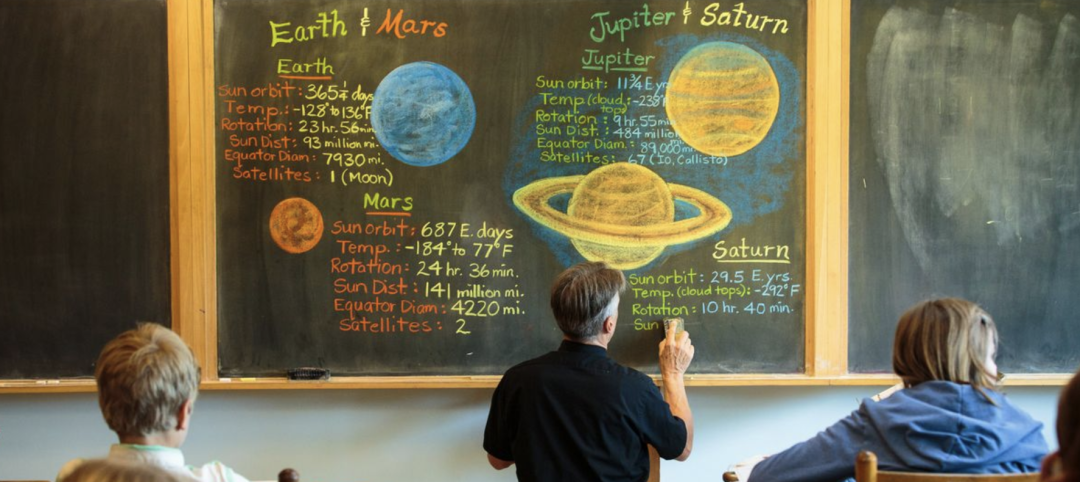 Earth & Mars
Earth
Sun orbit: 365¼ days
Temp.: -128° to 136°F
Rotation: 23 hr. 56 min.
Sun Dist: 93 million mi.
Equator Diam: 7930 mi.
Satellites: 1 (Moon)
Mars
Sun orbit: 687 E. days
Temp.: -184° to 77°F
Rotation: 24 hr. 36 min.
Sun Dist: 141 million mi.
Equator Diam: 4220 mi.
Satellites: 2
Jupiter & Saturn
Jupiter
Sun orbit: 11¾ E yr
Temp (cloud tops): -238°F
Rotation: 9 hr. 55 min
Sun Dist: 484 million
Equator Diam: 89,000 mi.
Satellites: 67 (Io, Callisto)
Saturn
Sun orbit: 29.5 E. yrs.
Temp. (cloud tops): -292°F
Rotation: 10 hr. 40 min.
Sun